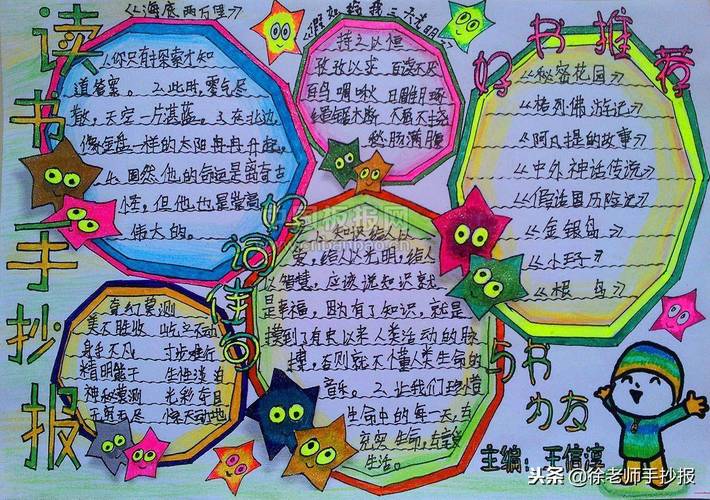 读书手抄报
《海底两万里》
1、你只有探索才知
道答案。2、此时,雾气尽
散,天空一片湛蓝。3、在北边,
像银盘一样的太阳冉冉升起。
4、固然他的命运是离奇古
怪,但他也是崇高
伟大的。
《假如给我三天光明》
持之以恒
孜孜以求 百读不厌
百鸟啁啾 日雕月琢
不屈不挠
愁肠满腹
好书推荐
《秘密花园》
《格列佛游记》
《阿凡提的故事》
《中外神话传说》
《假话国历险记》
《金银岛》
《小王子》
《根鸟》
好词佳句
奇幻莫测
美不胜收 屹立不动
身手不凡 寸步难行
精明能干 生性淡泊
神秘莫测 光彩夺目
无穷无尽 惊天动地
1、知识给人以
爱,给人以光明,给人
以智慧,应该说知识就
是幸福,因为有了知识,就是
摸到了有史以来人类活动的脉
搏,否则就不懂人类生命的
音乐。2、让我们珍惜
生命中的每一天,去
充实生命,去享受
生活。
与书
为友
主编:王信淳
头条@徐老师手抄报